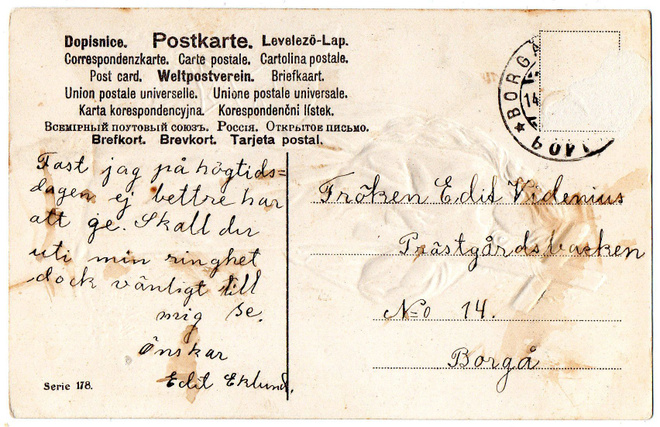 Dopisnice. Postkarte. Levelező-Lap.
Correspondenzkarte. Carte postale. Cartolina postale.
Post card. Weltpostverein. Briefkaart.
Union postale universelle. Unione postale universale.
Karta korespondencyjna. Korespondenčni lístek.
Всемірный почтовый союзъ. Россія. Открытое письмо.
Brefkort. Brevkort. Tarjeta postal.
BORGÅ
14
1409
Fast jag på högtids=
dagen ej bettre har
att ge. Skall du
uti min ringhet
dock vänligt till
mig se.
Önskar
Edit Eklund.
Serie 178.
Fröken Edit Videnius
Prästgårdsbacken
No 14.
Borgå